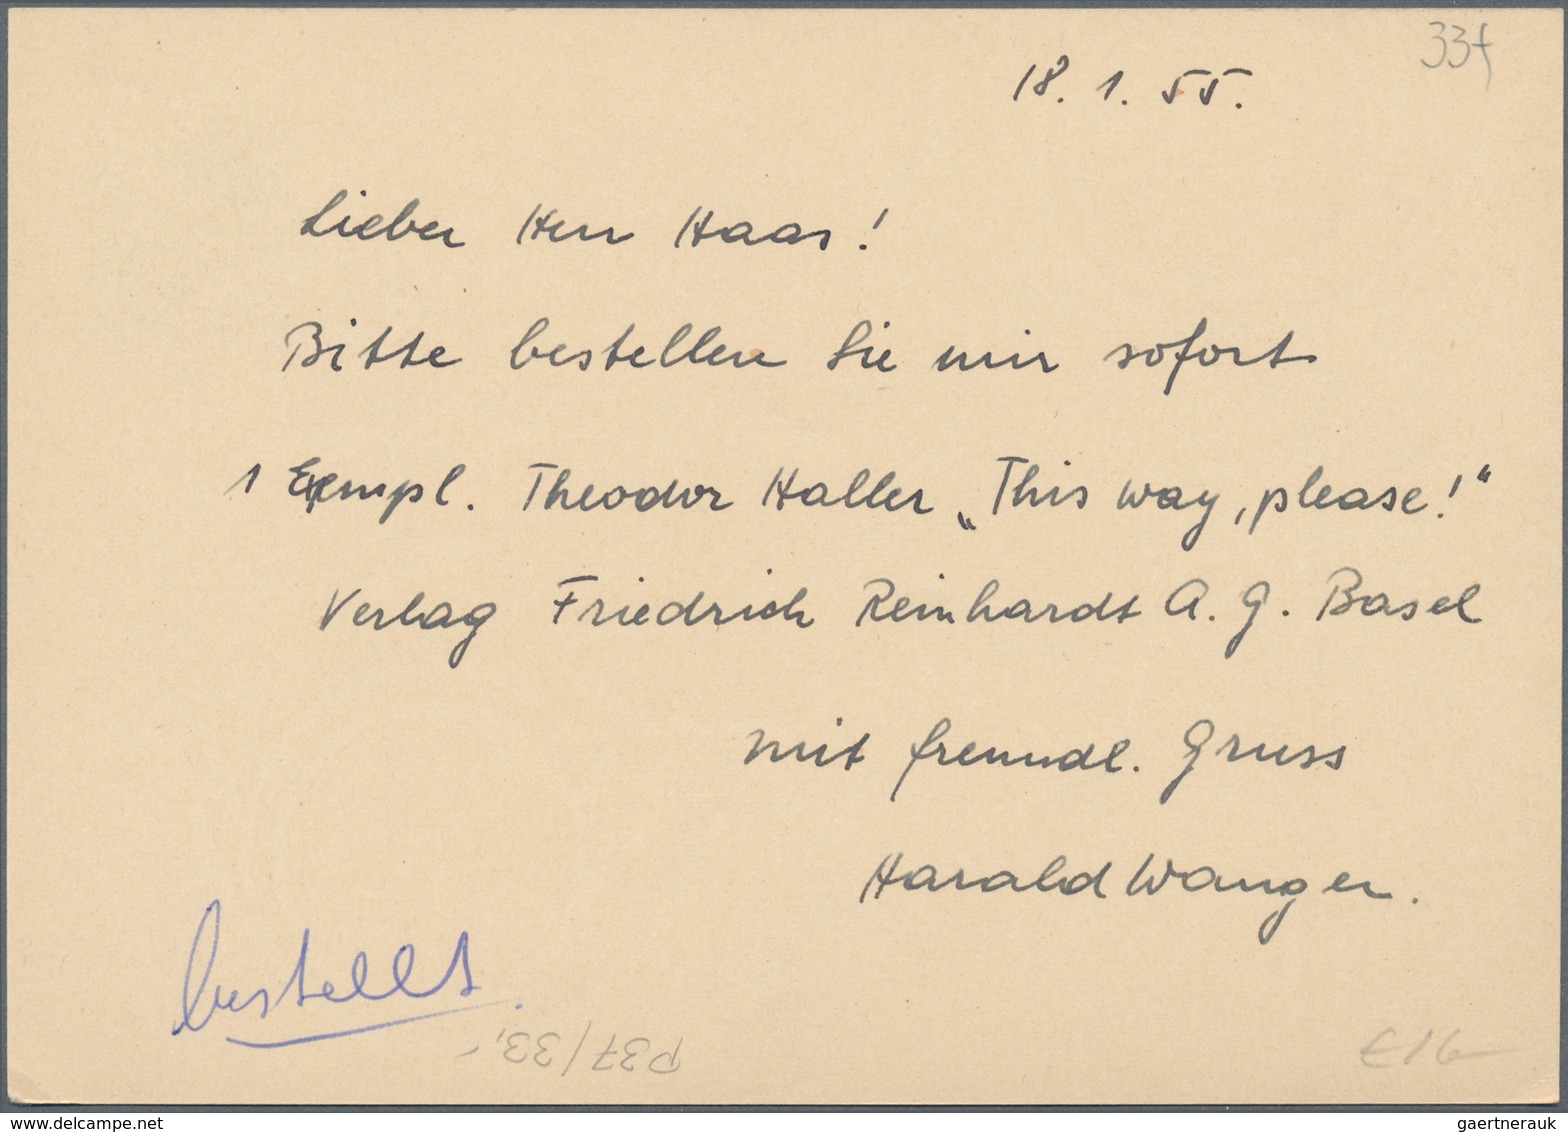 33f
18. 1. 55.
Lieber Herr Haas!
Bitte bestellen Sie mir sofort
1 Exempl. Theodor Haller „This way, please!“
Verlag Friedrich Reinhardt A. G. Basel
mit freundl. Gruss
Harald Wanger.
bestellt
P37/33,-
€16-
the-collectors.com
gaertnerauk